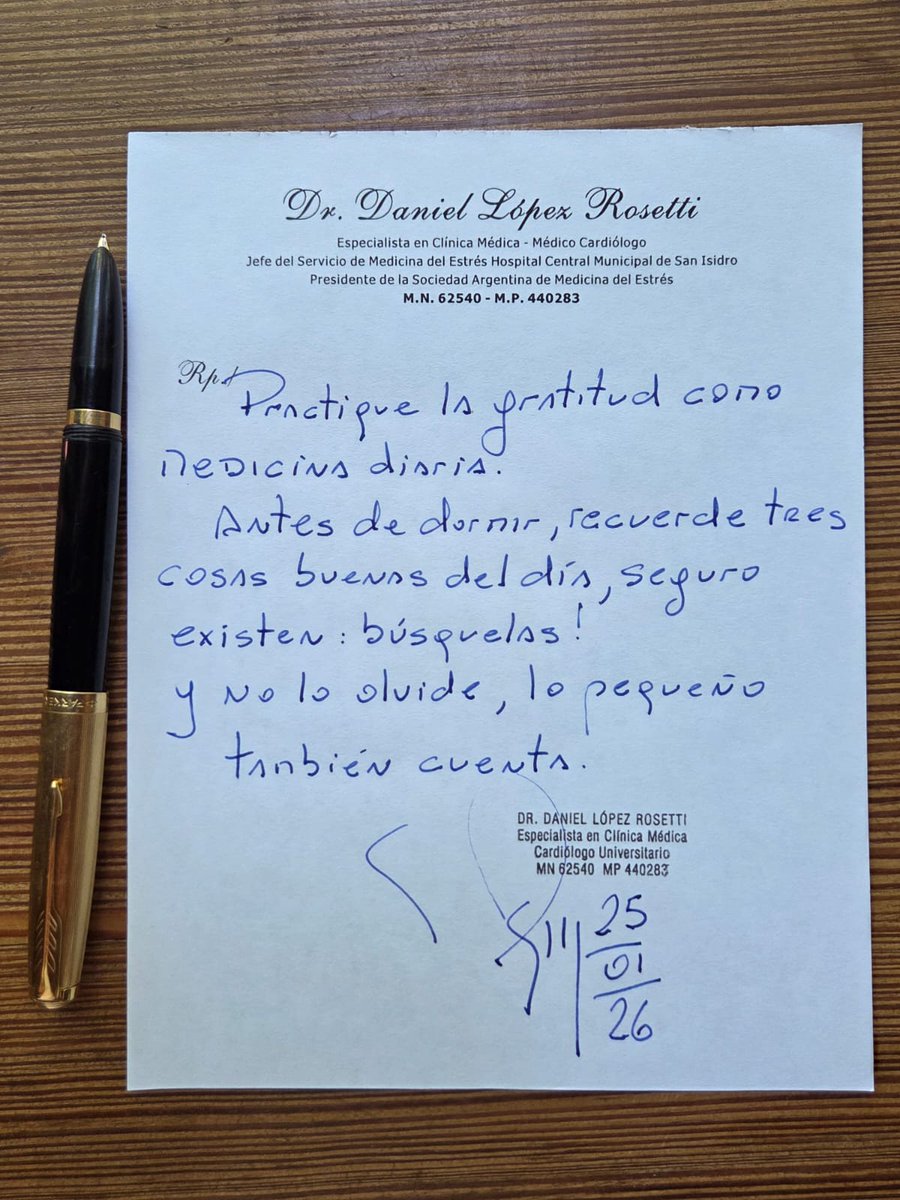 Dr. Daniel López Rosetti
Especialista en Clínica Médica - Médico Cardiólogo
Jefe del Servicio de Medicina del Estrés Hospital Central Municipal de San Isidro
Presidente de la Sociedad Argentina de Medicina del Estrés
M.N. 62540 - M.P. 440283
Rp/ Practique la gratitud como
medicina diaria.
Antes de dormir, recuerde tres
cosas buenas del día, seguro
existen: búsquelas!
y no lo olvide, lo pequeño
también cuenta.
DR. DANIEL LÓPEZ ROSETTI
Especialista en Clínica Médica
Cardiólogo Universitario
MN 62540 MP 440283
25
01
26